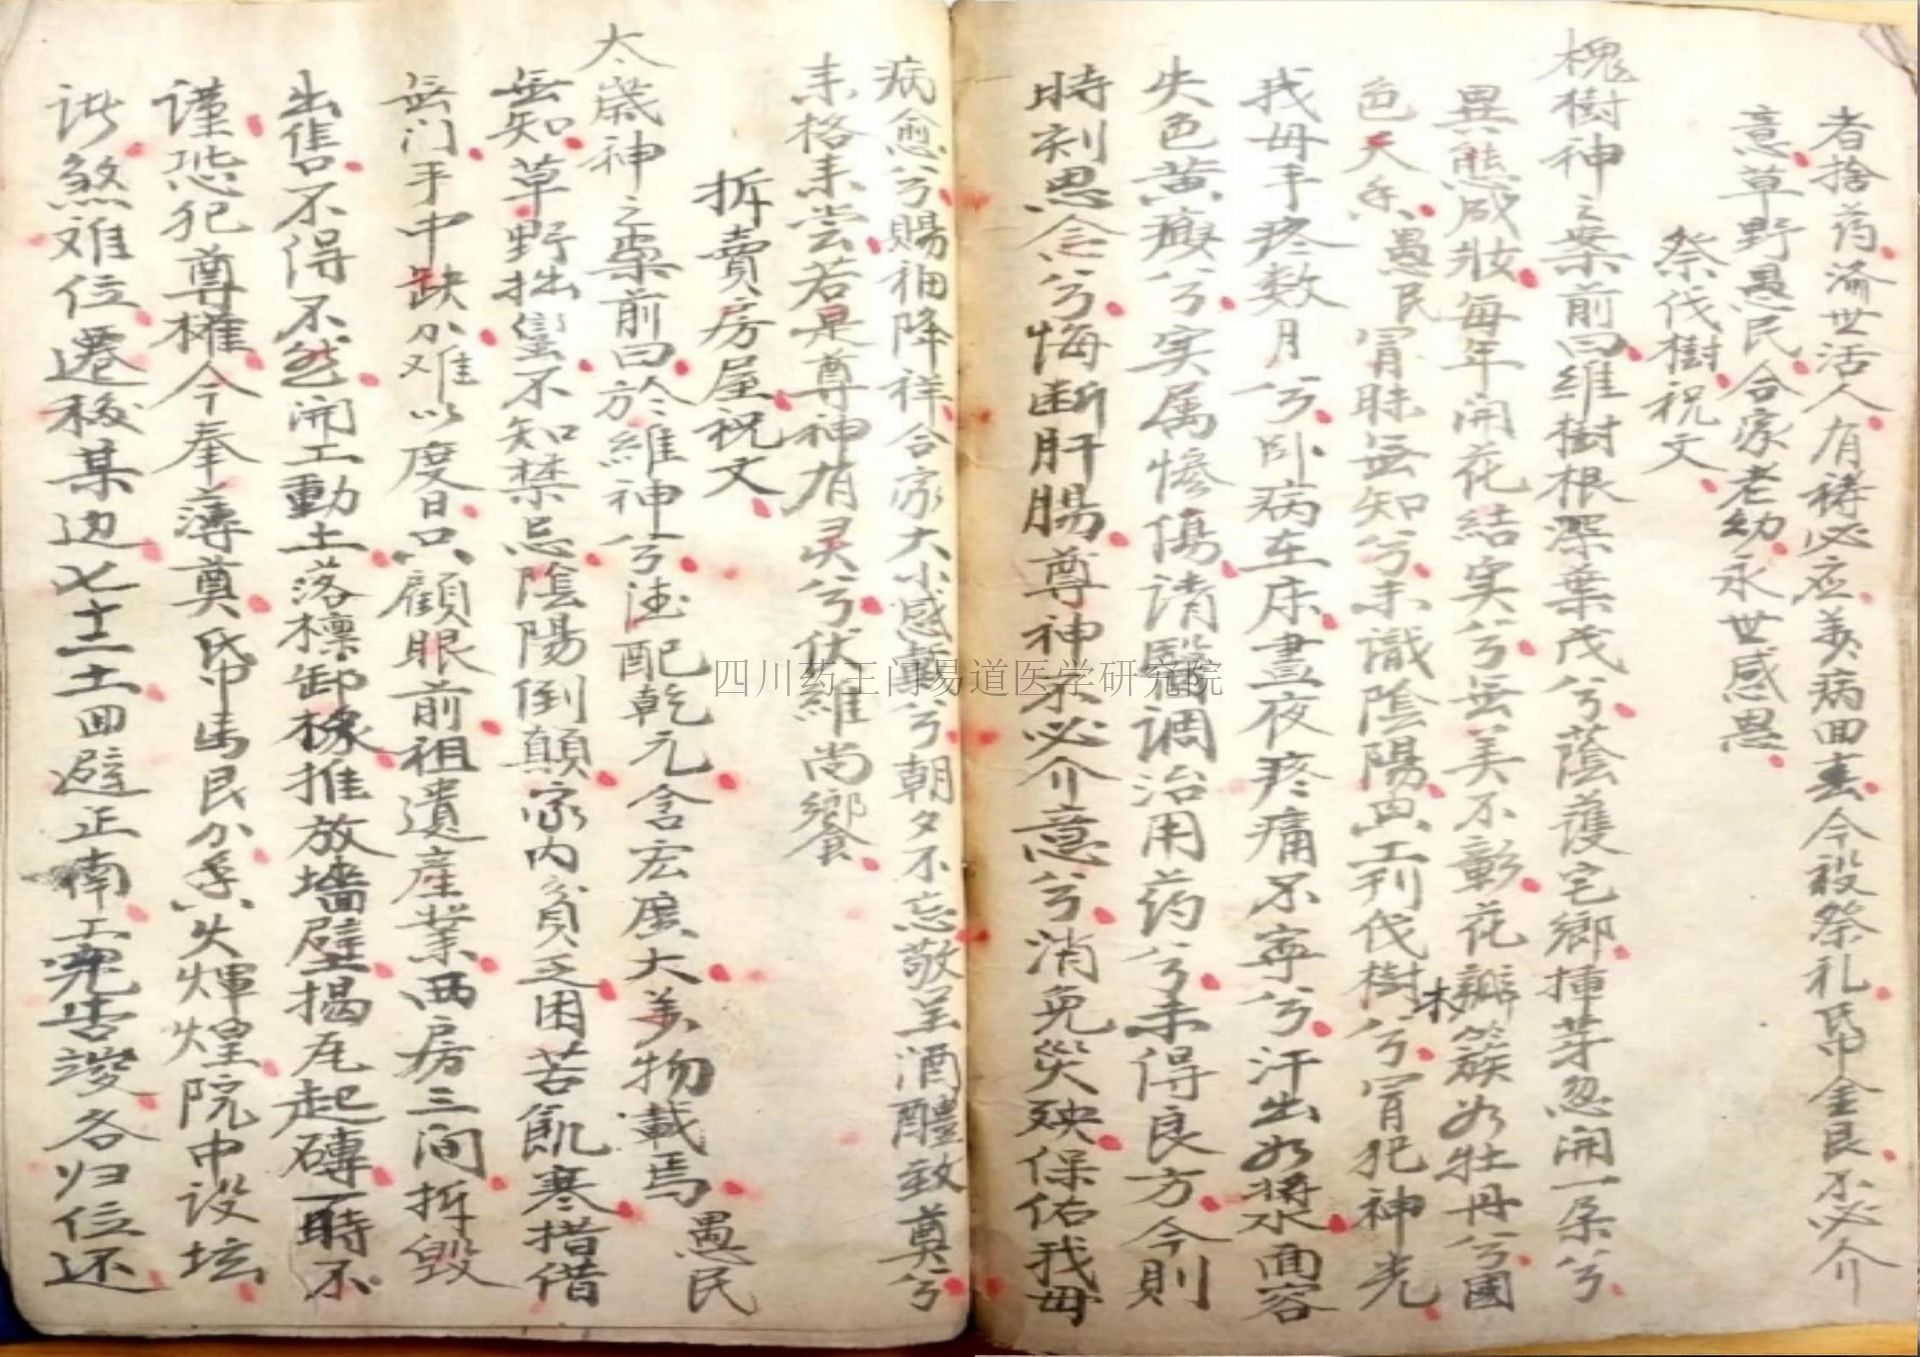 者捨药濟世活人有祷必应美病回春今設祭礼民巾金良不必介
意草野愚民合家老幼永世感恩
祭伐樹祝文
槐樹神之案前曰維樹根深葉茂兮蔭護宅鄉挿芽忽開一朵兮
異態成妝每年開花結实兮無美不彰花瓣木簇如牡丹兮國
色天香愚民冐昧無知兮未識陰陽興工刋伐樹兮冐犯神光
我母手疼数月兮卧病在床晝夜疼痛不寧兮汗出如漿水面容
失色黄瘦兮实属惨傷请醫調治用药兮未得良方今則
時刻思念兮悔断肝腸尊神不必介意兮消免災殃保佑我母
病愈兮賜福降祥合家大小感戴兮朝夕不忘敬呈酒醴致奠兮
来格来尝若是尊神有灵兮伏維尚饗
拆賣房屋祝文
太歳神之案前曰於維神兮德配乾元含宏廣大美物載焉愚民
無知草野拙蛮不知禁忌陰陽倒顛家内貧乏困苦飢寒措借
無门手中缺少难以度日只顧眼前祖遺産業西房三间拆毁
出售不得不然開工動土落檩卸椽推放墻壁揭瓦起磚一時不
谨恐犯尊權今奉薄奠民巾出民少香火煇煌院中设坛
诸煞难位遷移某边七十二土回避正南工完告竣各归位还
四川药王门易道医学研究院